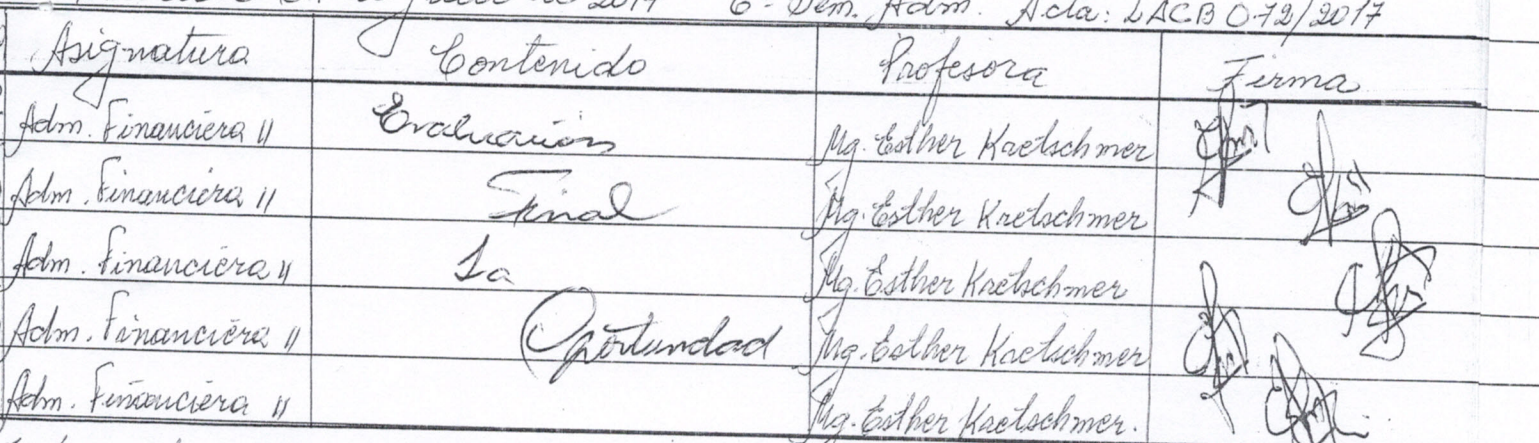 2017 6º Sem. Adm. Acta: LACB 072/2017
Asignatura Contenido Profesora Firma
Adm. Financiera II Evaluación Mg. Esther Kretschmer
Adm. Financiera II Final Mg. Esther Kretschmer
Adm. Financiera II 1a Mg. Esther Kretschmer
Adm. Financiera II Oportundad Mg. Esther Kretschmer
Adm. Financiera II Mg. Esther Kretschmer.